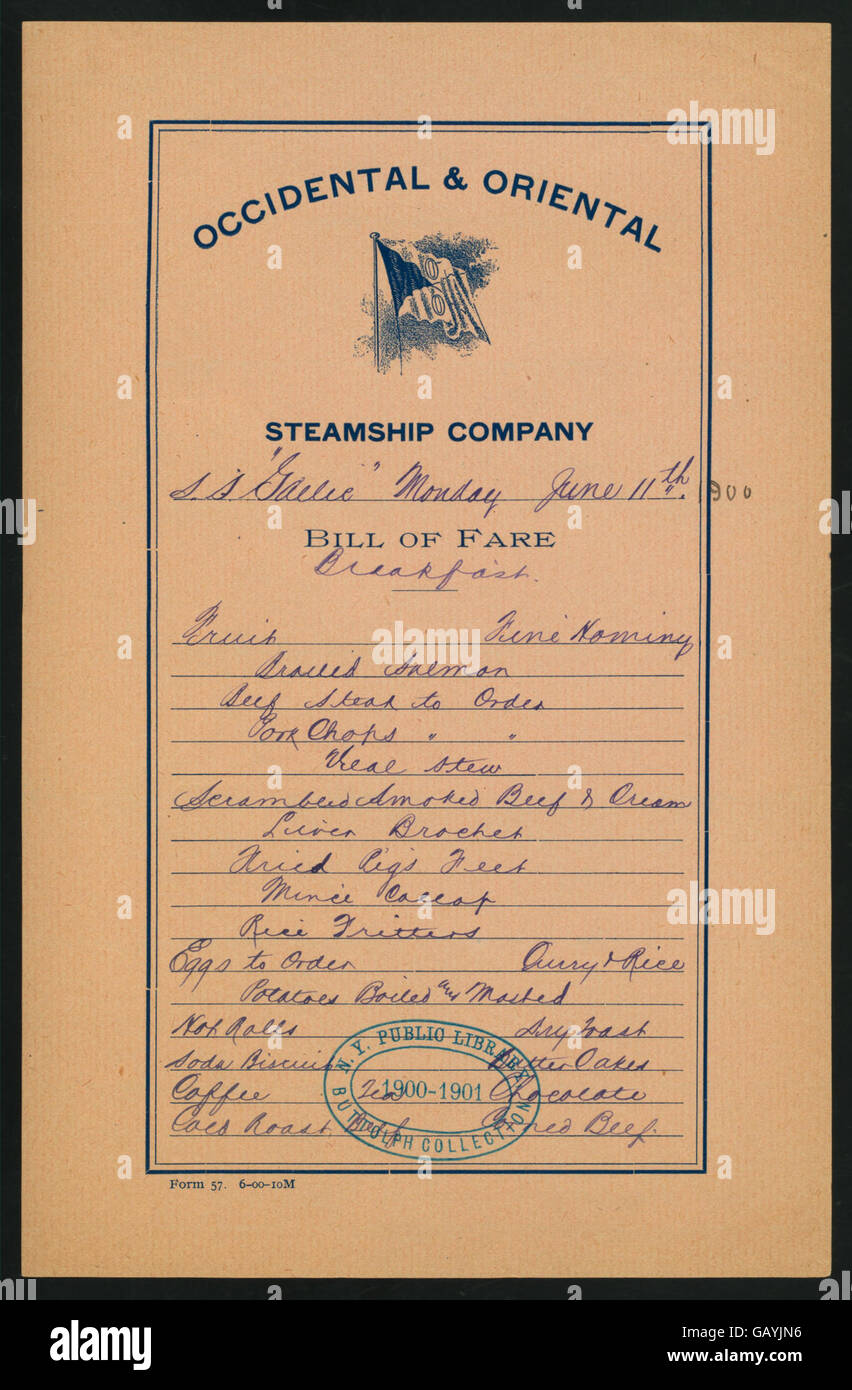 OCCIDENTAL & ORIENTAL
STEAMSHIP COMPANY
S.S "Gaelic" Monday June 11th. 1900
BILL OF FARE
Breakfast.
Fruit Fine Hominy
Broiled Salmon
Beef Steak to Order
Pork Chops " "
Veal Stew
Scrambled Smoked Beef & Cream
Liver Brochet
Fried Pigs Feet
Mince Collop
Rice Fritters
Eggs to Order Curry & Rice
Potatoes Boiled and Mashed
Hot Rolls Dry Toast
Soda Biscuit Butter Cakes
Coffee Tea Chocolate
Cold Roast Beef Corned Beef.
N.Y. PUBLIC LIBRARY
1900-1901
BUTTOLPH COLLECTION
Form 57. 6-00-10M
alamy
Image ID: GAYJN6
www.alamy.com